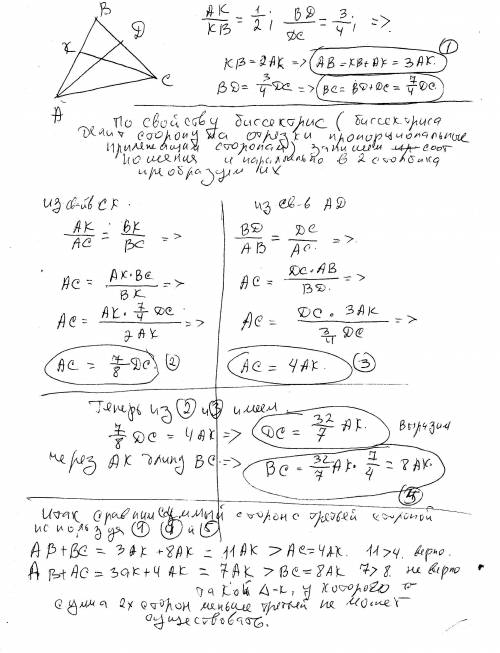 B
K
D
A
C
AK/KB = 1/2; BD/DC = 3/4; =>.
KB = 2AK => AB = KB + AK = 3AK. (1)
BD = 3/4 DC => BC = BD + DC = 7/4 DC.
По свойству биссектрис (биссектриса
делит сторону на отрезки пропорциональные
прилежащим сторонам) запишем соот
ношения и параллельно в 2 столбика
преобразуем их
из св-тв CK.
AK/AC = BK/BC =>
AC = AK·BC/BK =>
AC = AK·7/4 DC/2AK =>
AC = 7/8 DC. (2)
из св-в AD
BD/AB = DC/AC. =>.
AC = DC·AB/BD. =>
AC = DC·3AK/3/4 DC =>
AC = 4AK. (3)
Теперь из (2) и (3) имеем.
7/8 DC = 4AK => DC = 32/7 AK. Выразим
через AK длину BC. => BC = 32/7 AK · 7/4 = 8AK.
Итак сравним суммы сторон с третьей стороной
используя (1) (4) и (5)
AB + BC = 3AK + 8AK = 11AK > AC = 4AK. 11 > 4. верно.
AB + AC = 3AK + 4AK = 7AK > BC = 8AK 7 > 8. не верно
такой Δ-к, у которого
сумма 2х сторон меньше третьей не может
существовать.